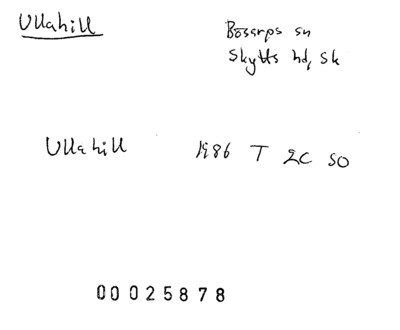 Ullahill
Bösarps sn
Skytts hd, Sk
Ullahill 1986 T 2C SO
00025878